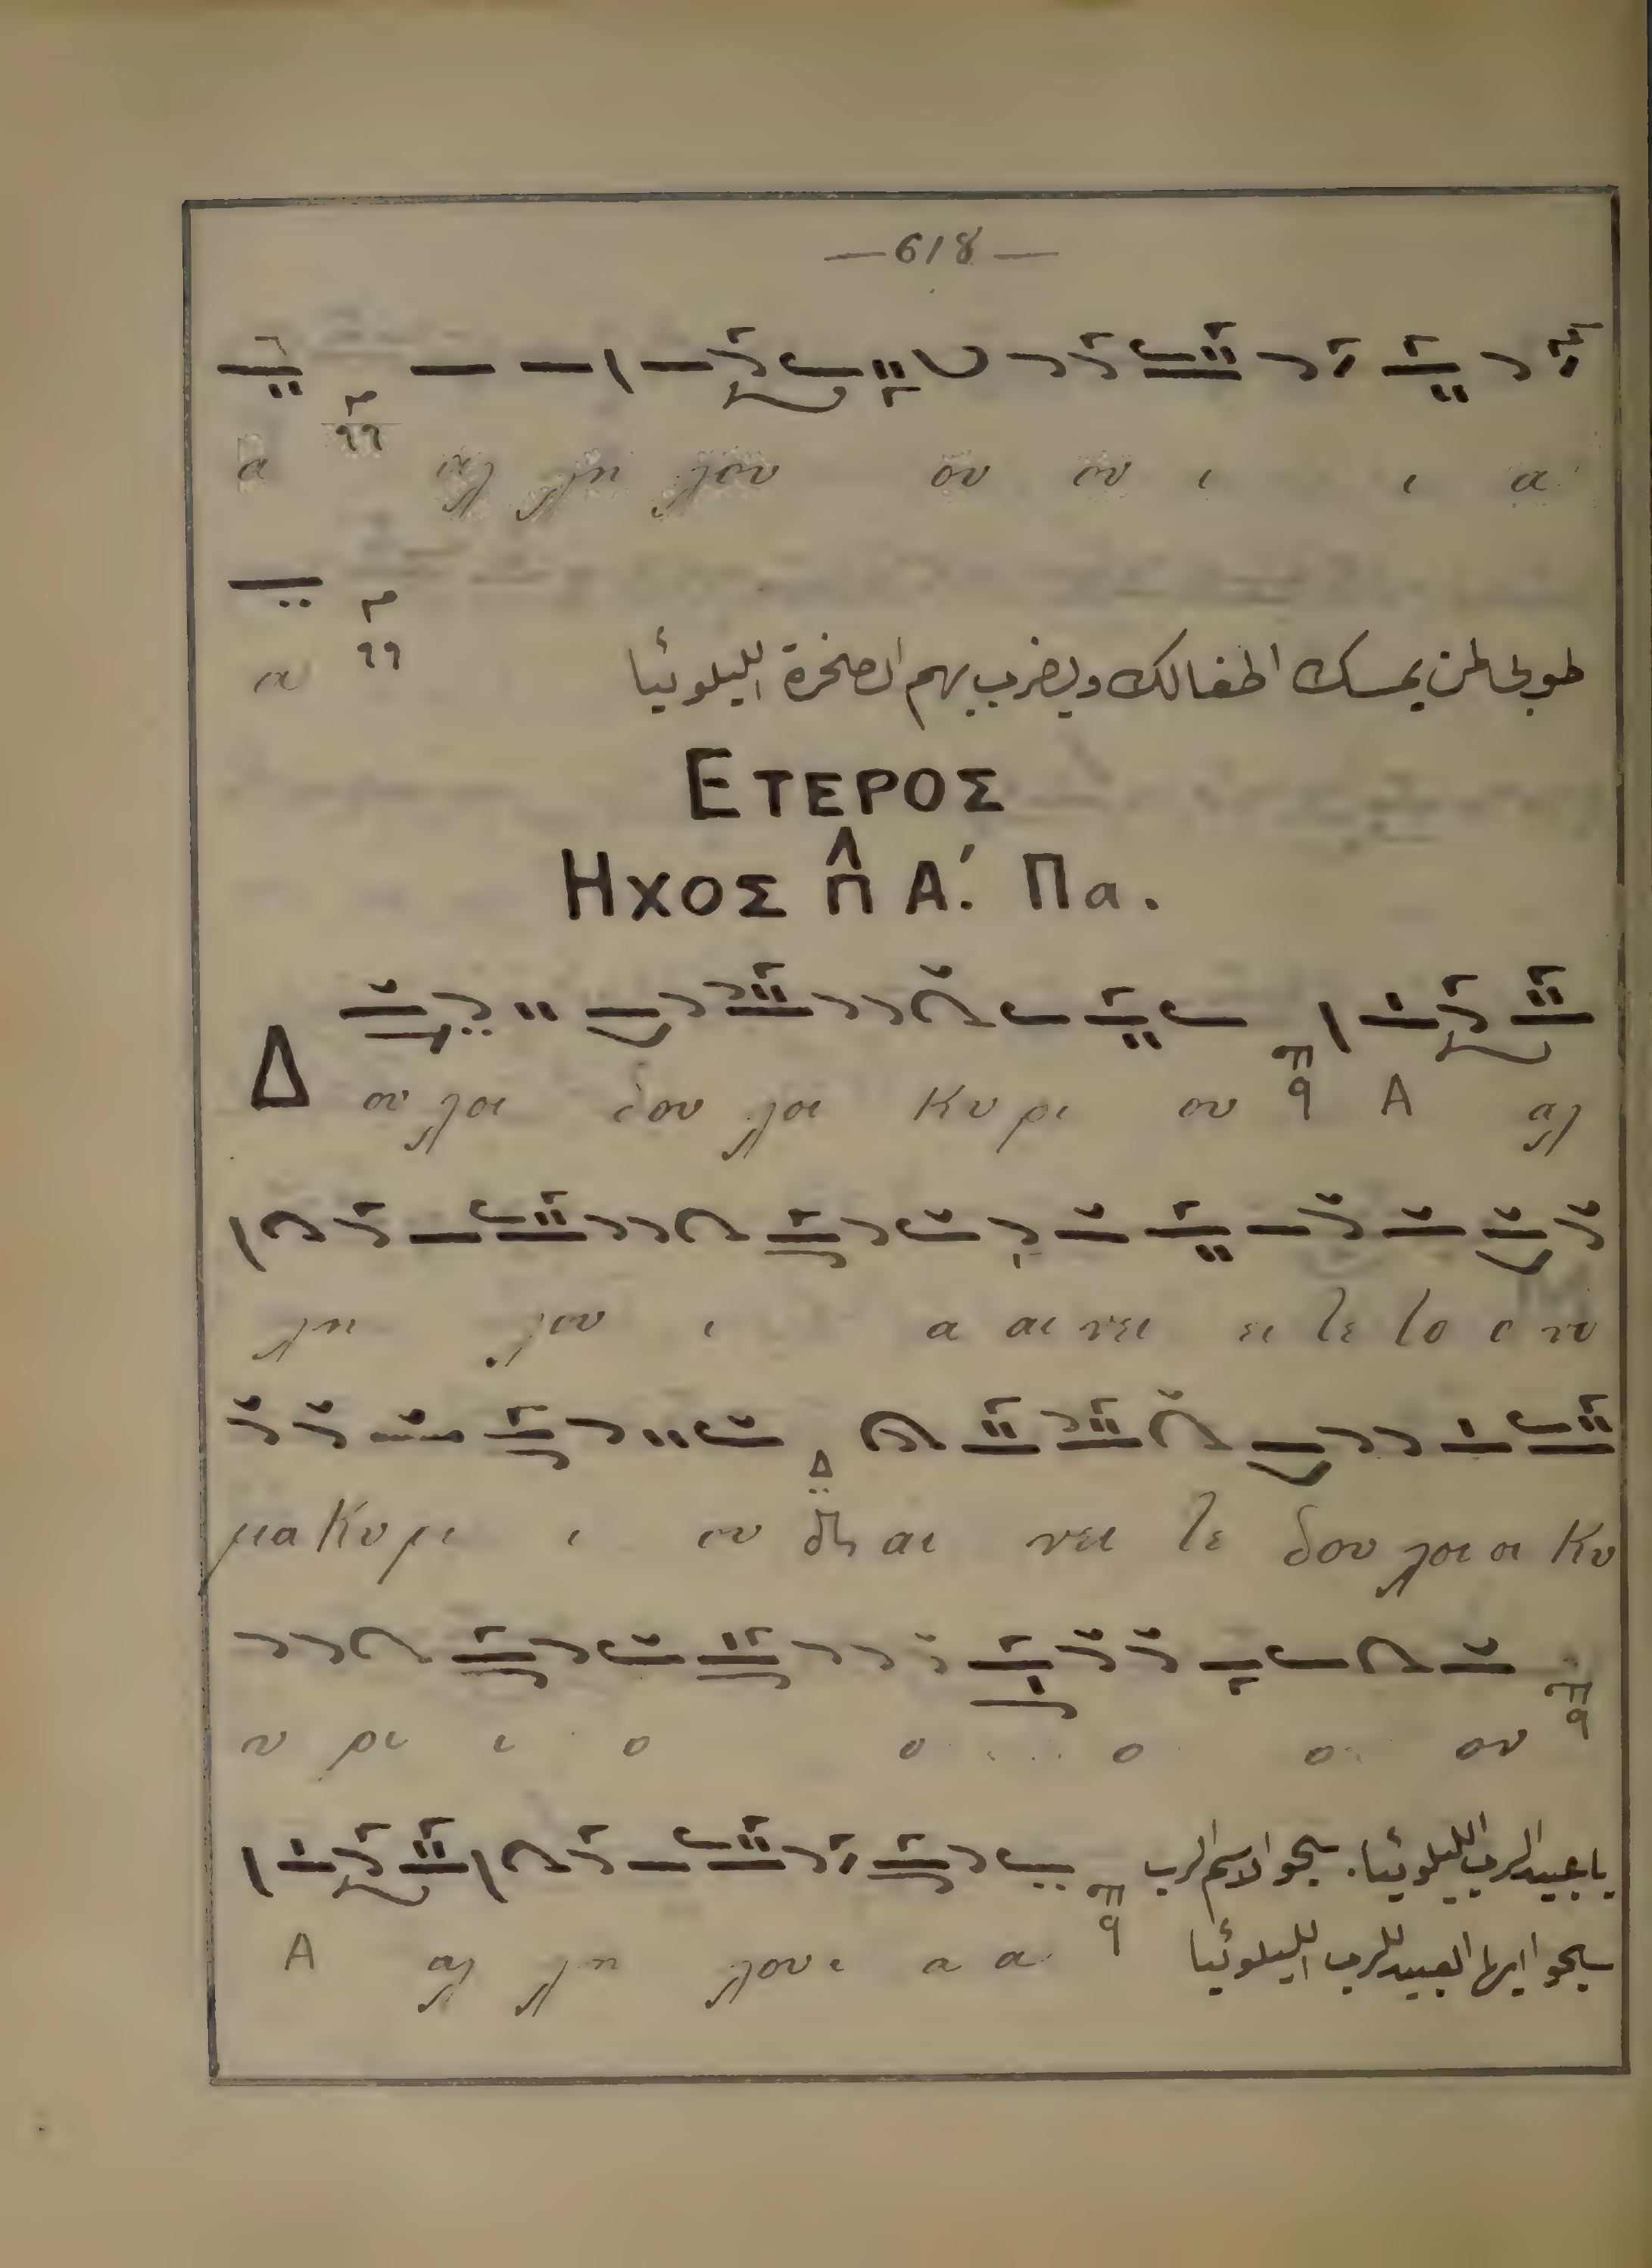 —618—
α αλ λη λου ου ου ι ι α
α
طوبى لمن يمسك اطفالك ويضرب بهم الصخرة الليلوئيا
ΕΤΕΡΟΣ
ΗΧΟΣ Π̂ Α΄. Πα.
Δ ου λοι δου λοι Κυ ρι ου Α αλ
λη λου ι α αι νει ει τε το ο νο
μα Κυ ρι ι ου αι νει τε δου λοι οι Κυ
υ ρι ι ο ο ο ο ου
يا عبيد الرب الليلوئيا. سبحوا لاسم الرب
Α αλ λη λου ι α α
سبحوا ايها العبيد للرب الليلوئيا